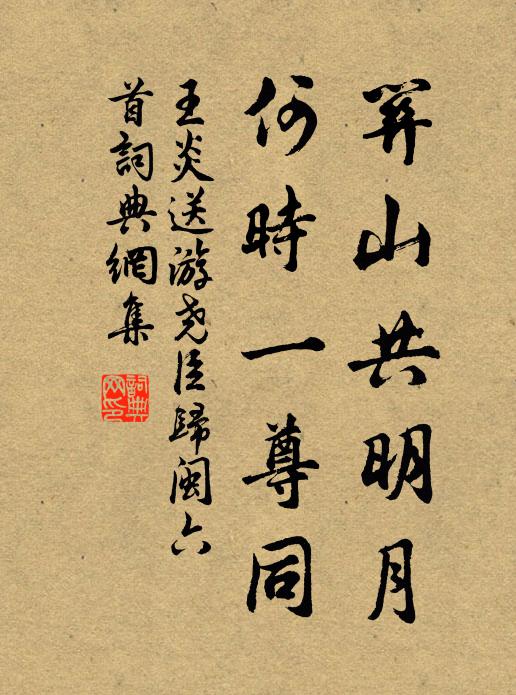 關山共明月
何時一尊同
王炎送游堯臣歸閩六
首詞典網集
詞典
网印